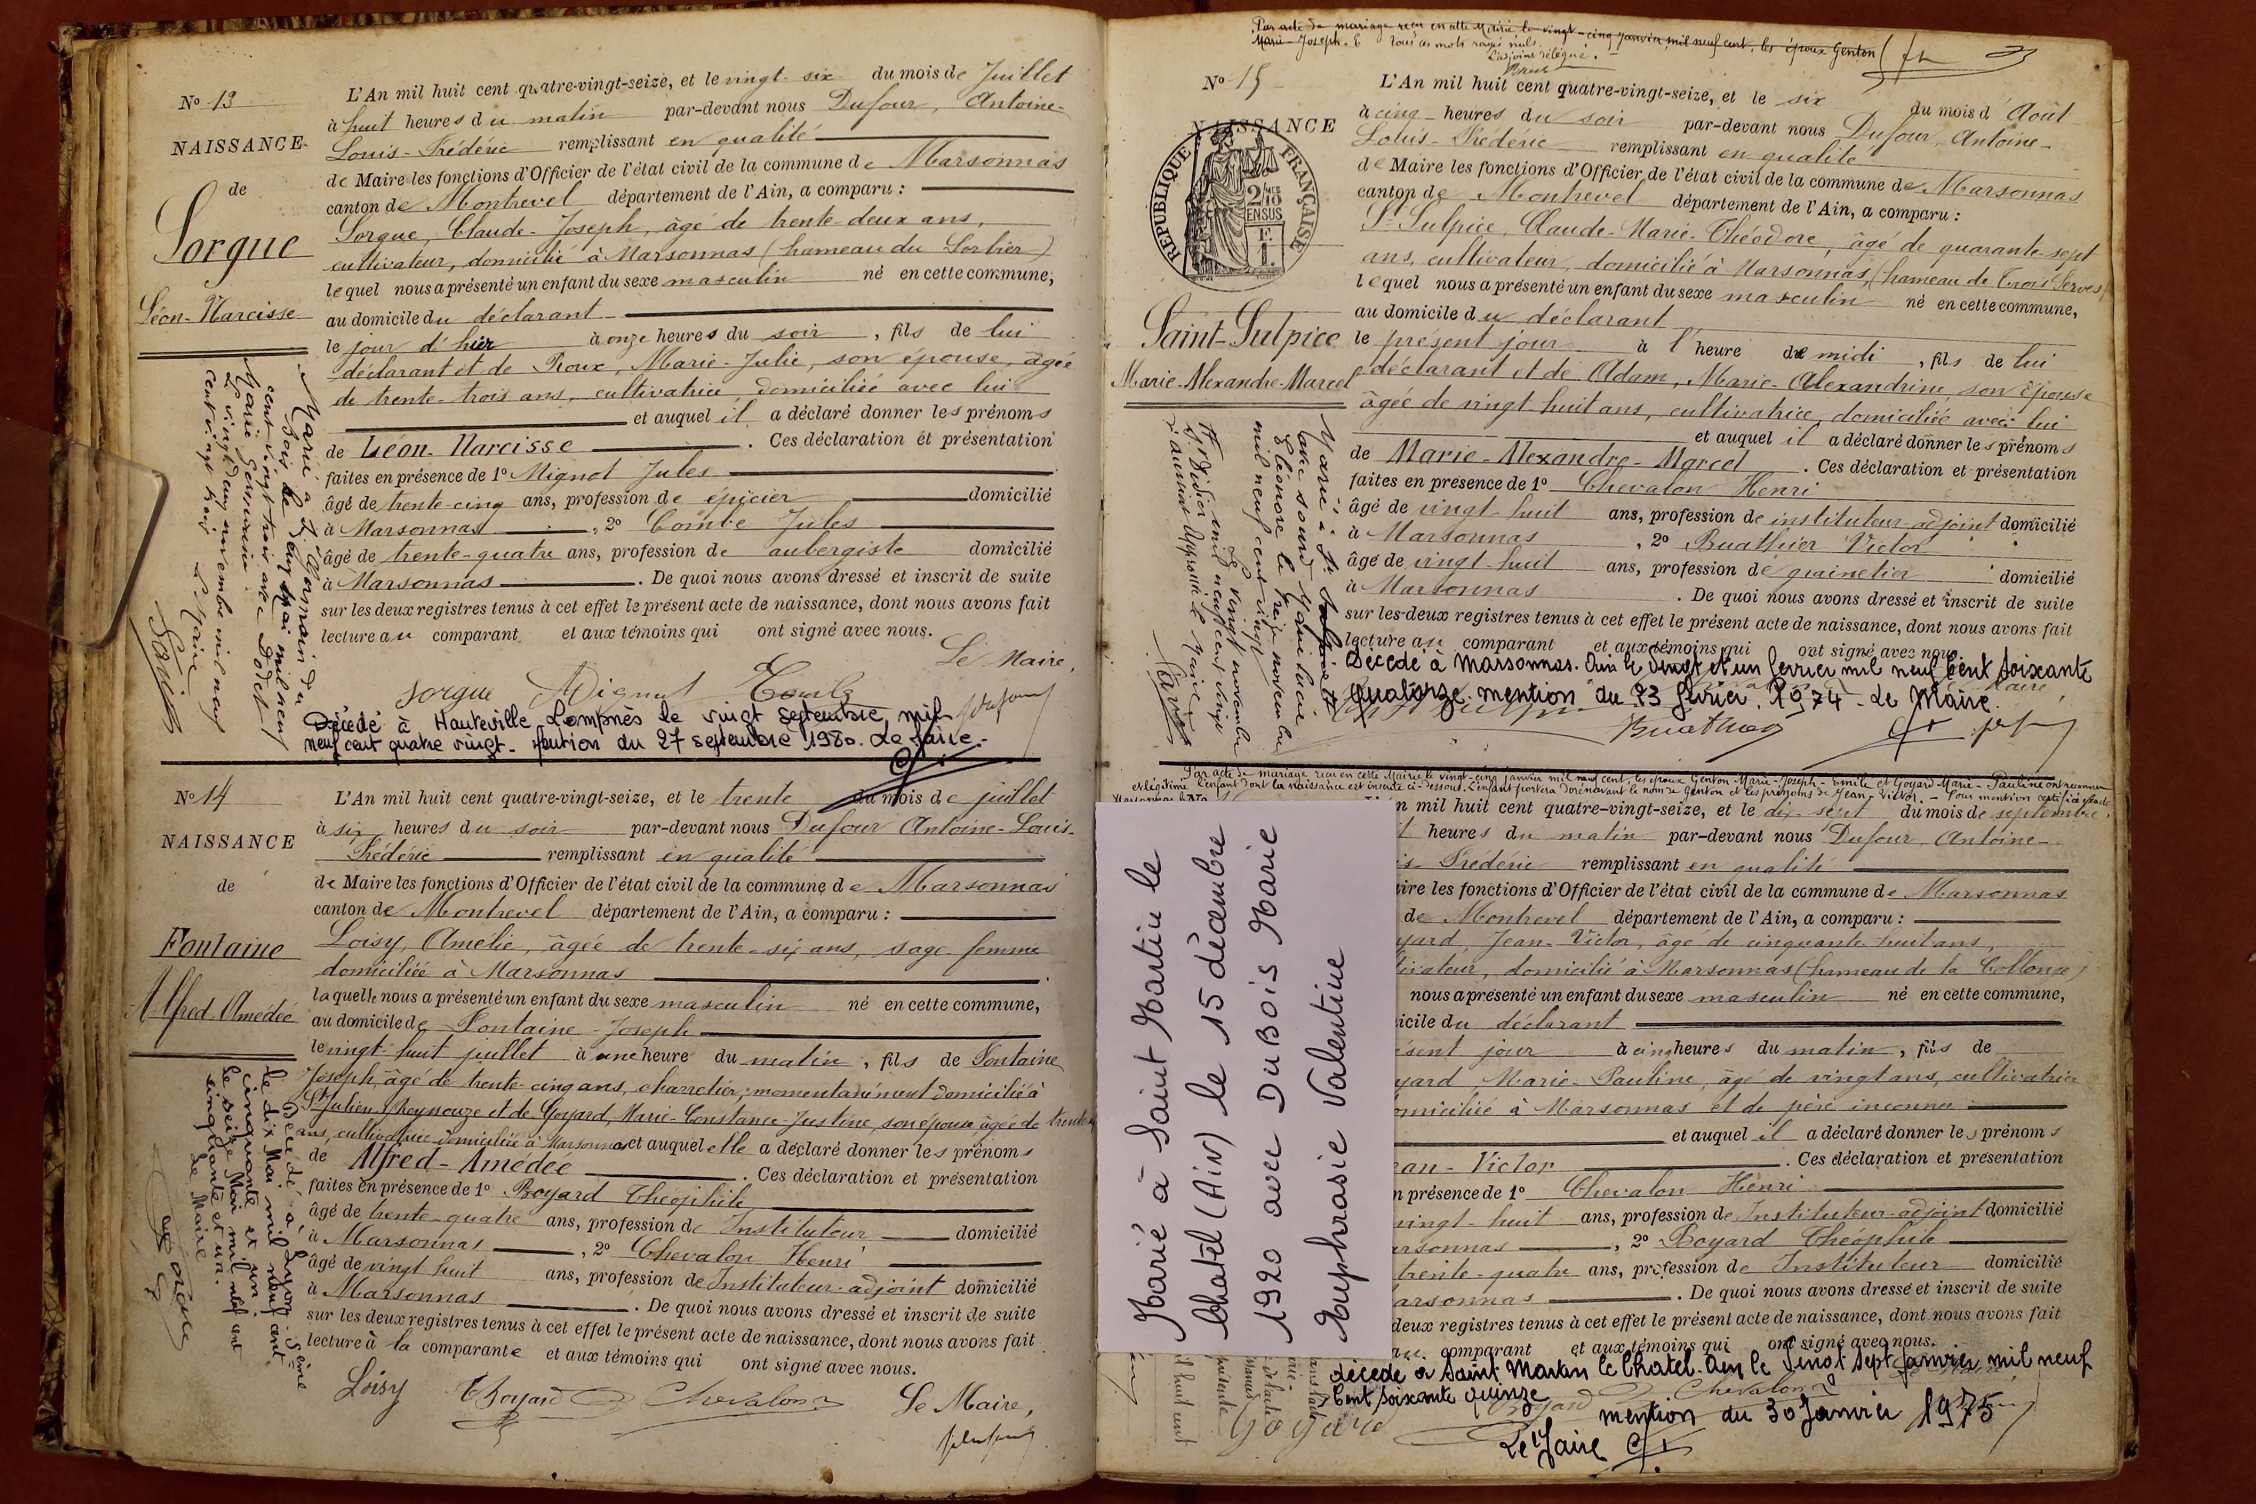 No 13
NAISSANCE
de
Sorgue
Léon-Narcisse
L'An mil huit cent quatre-vingt-seize, et le vingt-six du mois de Juillet
à huit heures du matin par-devant nous Dufour, Antoine-
Louis-Frédéric remplissant en qualité
de Maire les fonctions d'Officier de l'état civil de la commune de Marsonnas
canton de Montrevel département de l'Ain, a comparu :
Sorgue, Claude-Joseph, âgé de trente-deux ans,
cultivateur, domicilié à Marsonnas (hameau du Sorbier)
lequel nous a présenté un enfant du sexe masculin né en cette commune,
au domicile du déclarant
le jour d'hier à onze heures du soir, fils de lui
déclarant et de Proux, Marie-Julie, son épouse, âgée
de trente-trois ans, cultivatrice, domiciliée avec lui
et auquel il a déclaré donner les prénoms
de Léon-Narcisse. Ces déclaration et présentation
faites en présence de 1o Mignot Jules
âgé de trente-cinq ans, profession de épicier domicilié
à Marsonnas, 2o Combe Jules
âgé de trente-quatre ans, profession de aubergiste domicilié
à Marsonnas. De quoi nous avons dressé et inscrit de suite
sur les deux registres tenus à cet effet le présent acte de naissance, dont nous avons fait
lecture au comparant et aux témoins qui ont signé avec nous.
Le Maire,
Sorgue Mignot Combe Dufour
Décédé à Hauteville Lompnès le vingt septembre mil
neuf cent quatre vingt. Mention du 27 septembre 1980. Le Maire.
Marié à St Germain du
Bois le deux mai mil neuf
cent vingt trois avec Dodet
Marie Germaine.
Le vingt deux novembre mil neuf
cent vingt trois Le Maire
No 14
NAISSANCE
de
Fontaine
Alfred-Amédée
L'An mil huit cent quatre-vingt-seize, et le trente du mois de juillet
à six heures du soir par-devant nous Dufour Antoine-Louis-
Frédéric remplissant en qualité
de Maire les fonctions d'Officier de l'état civil de la commune de Marsonnas
canton de Montrevel département de l'Ain, a comparu :
Loisy, Amélie, âgée de trente-six ans, sage-femme
domiciliée à Marsonnas
laquelle nous a présenté un enfant du sexe masculin né en cette commune,
au domicile de Fontaine-Joseph
le vingt-huit juillet à une heure du matin, fils de Fontaine
Joseph, âgé de trente-cinq ans, charretier, momentanément domicilié à
St Julien s/Reyssouze et de Goyard, Marie-Constance-Justine, son épouse âgée de trente
ans, cultivatrice domiciliée à Marsonnas et auquel elle a déclaré donner les prénoms
de Alfred-Amédée. Ces déclaration et présentation
faites en présence de 1o Boyard Théophile
âgé de trente-quatre ans, profession de Instituteur domicilié
à Marsonnas, 2o Chevalon Henri
âgé de vingt-huit ans, profession de Instituteur-adjoint domicilié
à Marsonnas. De quoi nous avons dressé et inscrit de suite
sur les deux registres tenus à cet effet le présent acte de naissance, dont nous avons fait
lecture à la comparante et aux témoins qui ont signé avec nous.
Loisy Th Boyard Chevalon Le Maire,
Dufour
Décédé à Lyon 5ème
le dix Mai mil neuf cent
cinquante et un
le seize Mai mil neuf cent
cinquante et un.
Le Maire
Par acte de mariage reçu en cette Mairie le vingt-cinq janvier mil neuf cent, les époux Genton
Marie-Joseph-E Tous ces mots rayés nuls.
L'adjoint délégué.
No 15
NAISSANCE
REPUBLIQUE FRANÇAISE
2/10 EN SUS
E.
1.
Saint-Sulpice
Marie-Alexandre-Marcel
L'An mil huit cent quatre-vingt-seize, et le six du mois d'Août
à cinq heures du soir par-devant nous Dufour, Antoine-
Louis-Frédéric remplissant en qualité
de Maire les fonctions d'Officier de l'état civil de la commune de Marsonnas
canton de Montrevel département de l'Ain, a comparu :
St-Sulpice, Claude-Marie-Théodore, âgé de quarante-sept
ans, cultivateur, domicilié à Marsonnas, (hameau de Trois Serves)
lequel nous a présenté un enfant du sexe masculin né en cette commune,
au domicile du déclarant
le présent jour à l'heure de midi, fils de lui
déclarant et de Adam, Marie-Alexandrine, son épouse
âgée de vingt-huit ans, cultivatrice, domiciliée avec lui
et auquel il a déclaré donner les prénoms
de Marie-Alexandre-Marcel. Ces déclaration et présentation
faites en présence de 1o Chevalon Henri
âgé de vingt-huit ans, profession de instituteur-adjoint domicilié
à Marsonnas, 2o Buathier Victor
âgé de vingt-huit ans, profession de grainetier domicilié
à Marsonnas. De quoi nous avons dressé et inscrit de suite
sur les deux registres tenus à cet effet le présent acte de naissance, dont nous avons fait
lecture au comparant et aux témoins qui ont signé avec nous.
Décédé à Marsonnas. Ain le vingt et un février mil neuf cent soixante
quatorze. mention du 23 février. 1974 - Le Maire.
Buathier
Marié à St
avec
Eléonore le treize novembre
mil neuf cent vingt
Le vingt novembre
mil neuf cent vingt
Le Maire
Par acte de mariage reçu en cette Mairie le vingt-cinq janvier mil neuf cent, les époux Genton-Marie-Joseph-Emile et Goyard Marie-Pauline ont reconnu
et légitimé l'enfant dont la naissance est inscrite ci-dessous. L'enfant portera dorénavant le nom de Genton et les prénoms de Jean-Victor. - Pour mention certifiée exacte
n mil huit cent quatre-vingt-seize, et le dix-sept du mois de septembre.
t heures du matin par-devant nous Dufour, Antoine-
is-Frédéric remplissant en qualité
ire les fonctions d'Officier de l'état civil de la commune de Marsonnas
de Montrevel département de l'Ain, a comparu :
yard, Jean-Victor, âgé de cinquante-huit ans,
tivateur, domicilié à Marsonnas (hameau de la Collonge)
nous a présenté un enfant du sexe masculin né en cette commune,
icile du déclarant
ésent jour à cinq heures du matin, fils de
yard, Marie-Pauline, âgé de vingt ans, cultivatrice
omiciliée à Marsonnas et de père inconnu
et auquel il a déclaré donner les prénoms
ean-Victor. Ces déclaration et présentation
n présence de 1o Chevalon Henri
vingt-huit ans, profession de Instituteur-adjoint domicilié
arsonnas, 2o Boyard Théophile
trente-quatre ans, profession de Instituteur domicilié
arsonnas. De quoi nous avons dressé et inscrit de suite
deux registres tenus à cet effet le présent acte de naissance, dont nous avons fait
au comparant et aux témoins qui ont signé avec nous.
décédé à Saint Martin le Chatel. Ain le vingt sept janvier mil neuf
cent soixante quinze
Goyard Boyard Chevalon
mention du 30 Janvier 1975
Le Maire
Marié à Saint Martin le
Chatel (Ain) le 15 décembre
1920 avec DuBois Marie
Euphrasie Valentine